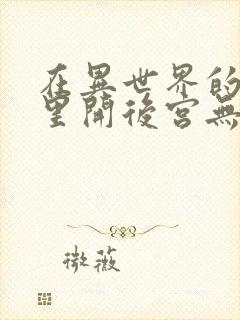 在異世界的
里開後宮無
微薇